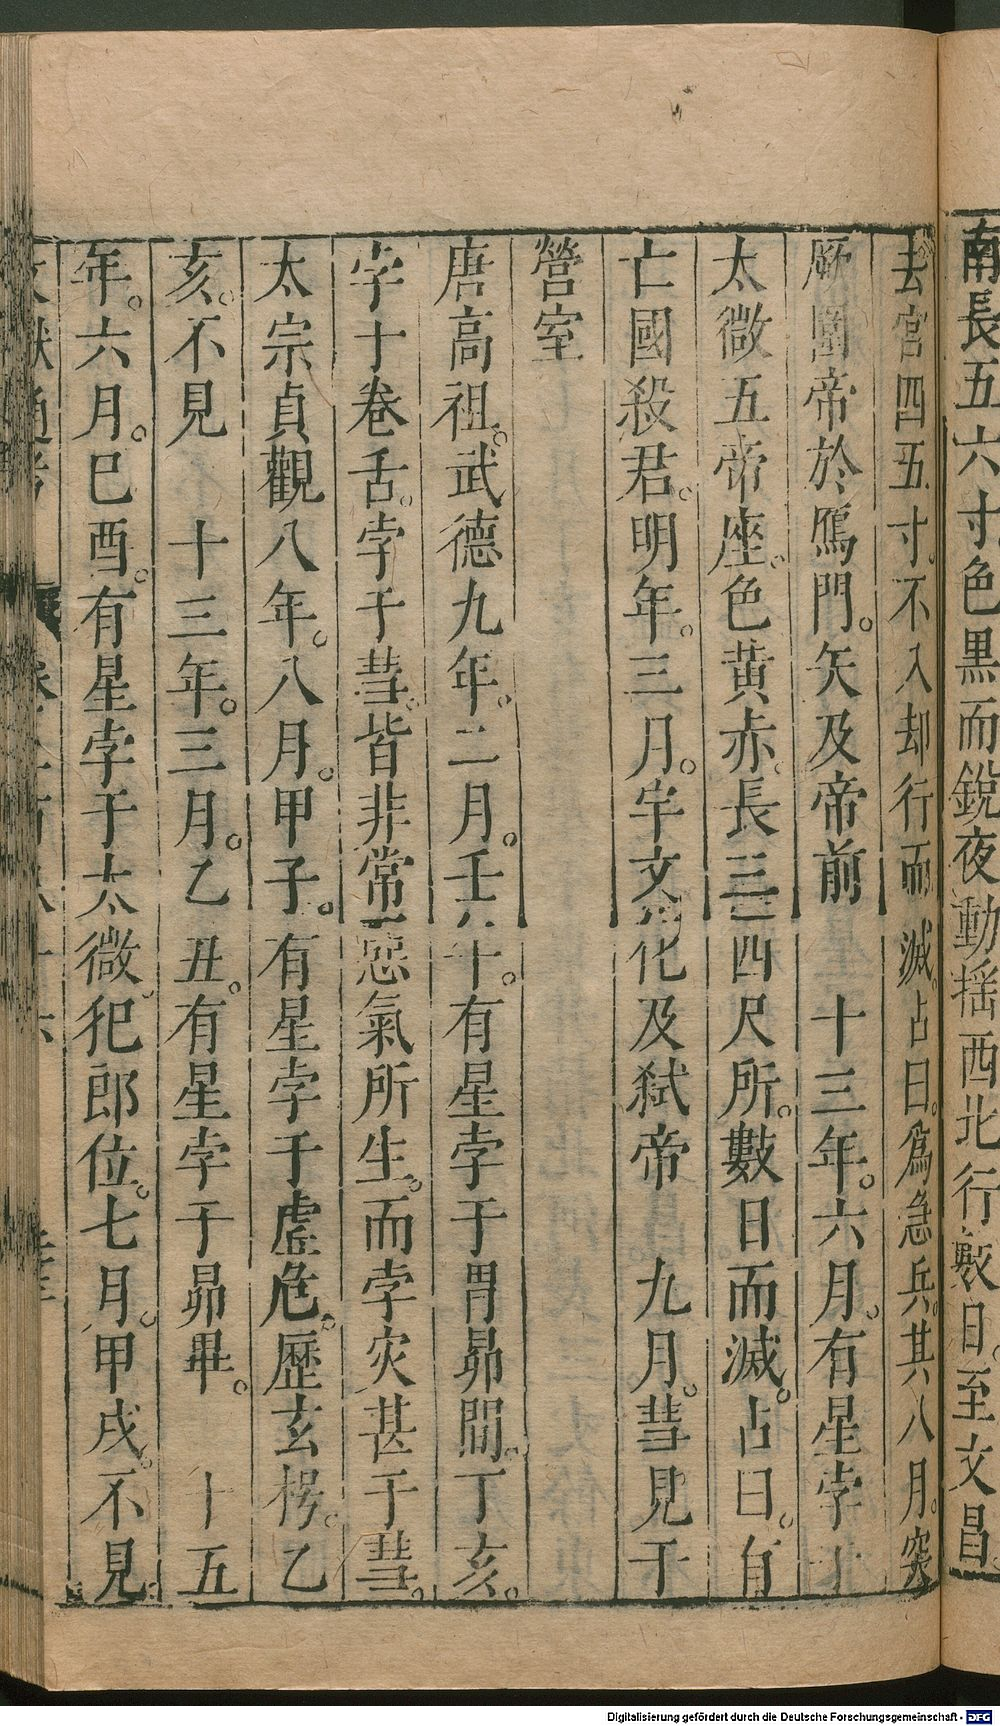 南長五六寸色黒而銳夜動揺西北行數日。至文昌。
去宮四五寸。不入却行而滅。占曰。爲急兵。其八月。突
厥圍帝於鴈門。矢及帝前　十三年。六月。有星孛于
太微五帝座。色黄赤。長三四尺所。數日而滅。占曰。有
亡國殺君。明年。三月。宇文化及弑帝　九月。彗見于
營室
唐高祖。武德九年。二月。壬午。有星孛于胃昴間。丁亥。
孛于卷舌。孛于彗。皆非常惡氣所生。而孛災甚于彗。
太宗貞觀八年。八月。甲子。有星孛于虛危。歷玄枵。乙
亥。不見　十三年。三月。乙丑。有星孛于昴畢。　十五
年。六月。巳酉。有星孛于太微。犯郎位。七月。甲戌。不見。
文獻通考
Digitalisierung gefördert durch die Deutsche Forschungsgemeinschaft - DFG